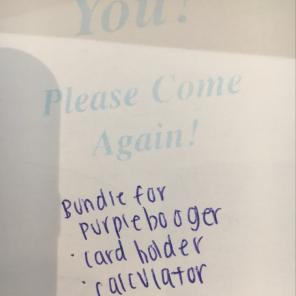 You!
Please Come
Again!
Bundle for
purplebooger
· card holder
· calculator